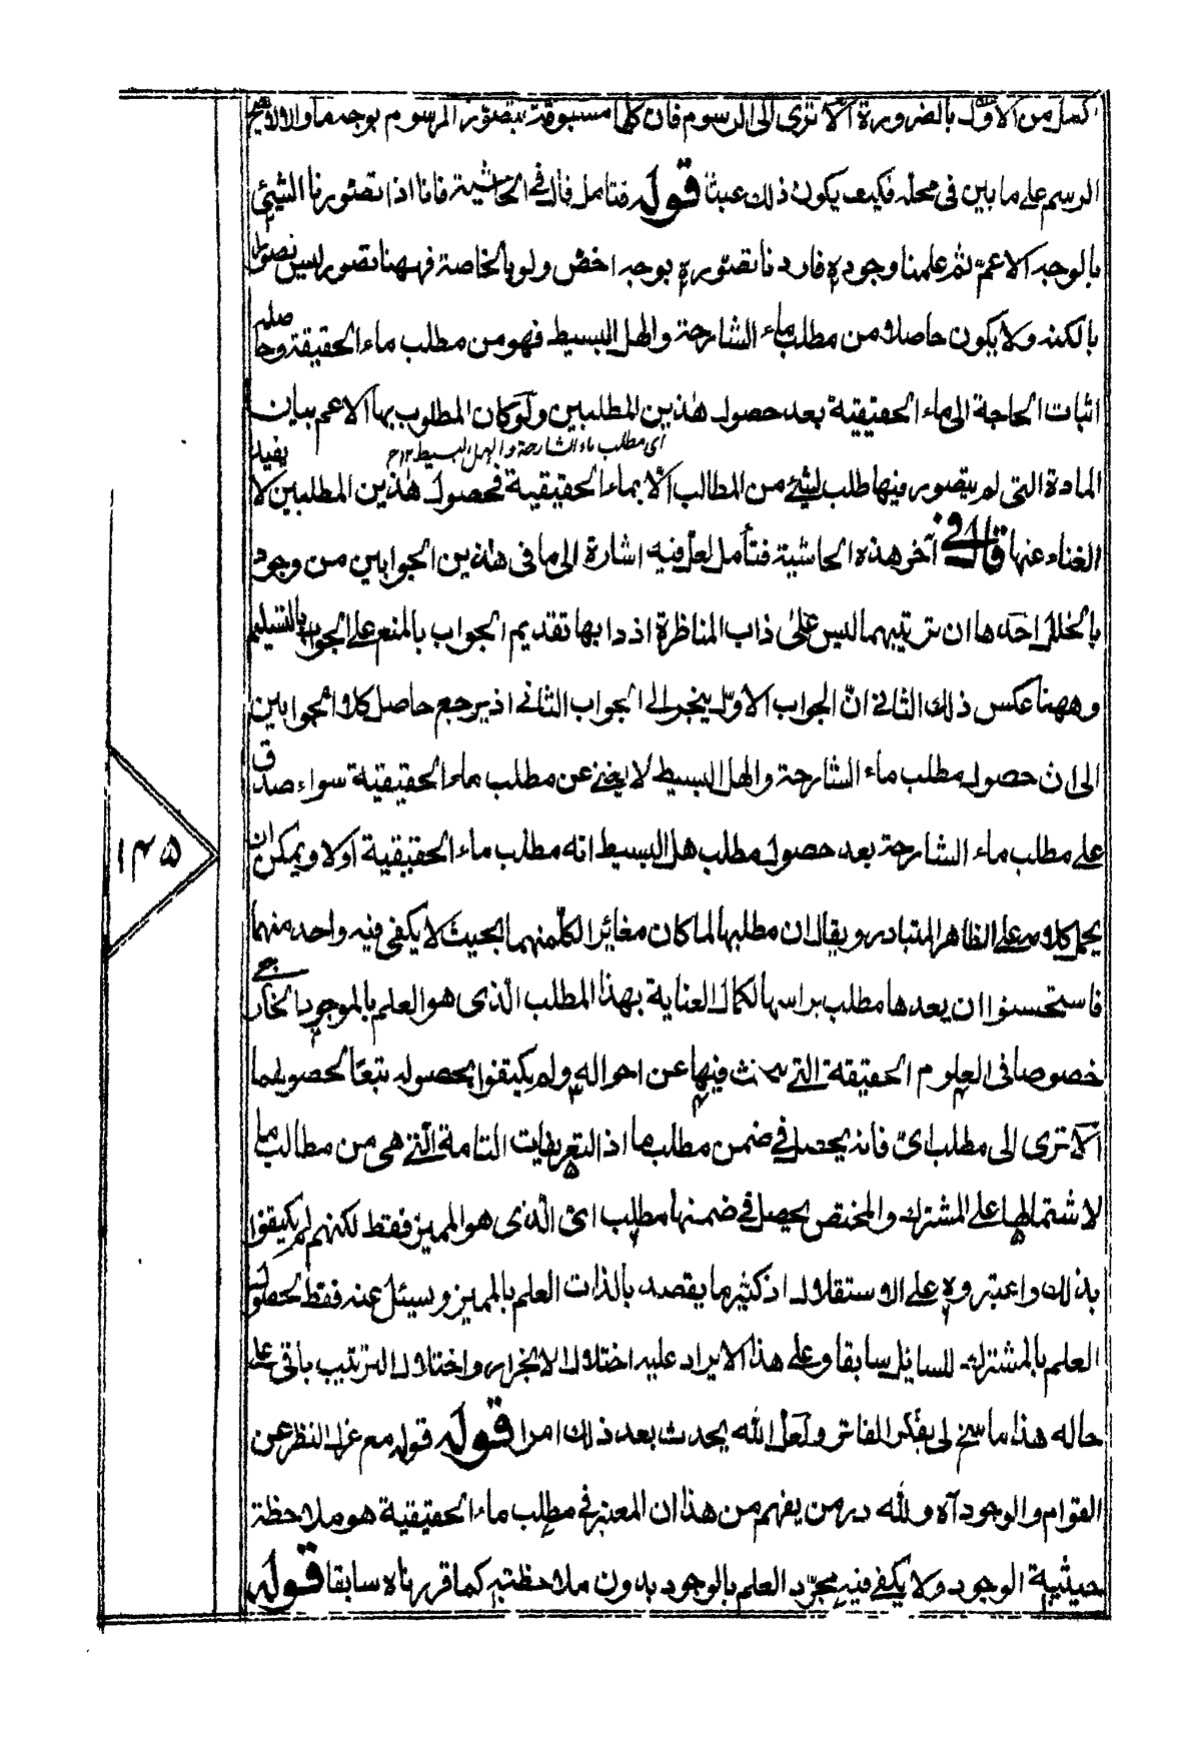 اكمل من الاول بالضرورة ألا ترى الى الرسوم فان كلها مسبوقة بتصور المرسوم بوجه ما والا لا يصح
الرسم على ما بين في محله فكيف يكون ذلك عبثا قوله فتامل قال في الحاشية فانا اذا تصورنا الشيئ
بالوجه الاعم ثم علمنا وجوده فاردنا تصوره بوجه اخص ولو بالخاصة فههنا تصور ليس تصورا
بالكنه ولا يكون حاصلا من مطلب ماء الشارحة والهل البسيط فهو من مطلب ماء الحقيقة وحاصله
اثبات الحاجة الى ماء الحقيقية بعد حصول هذين المطلبين ولو كان المطلوب بها الاعم ببيان
اى مطلب ماء الشارحة والهل البسيط ١٢
المادة التى لم يتصور فيها طلب لشئ من المطالب الا بماء الحقيقية فحصول هذين المطلبين لا يفيد
الغناء عنها قال في آخر هذه الحاشية فتأمل لعل فيه اشارة الى ما فى هذين الجوابين من وجود
بالخلل احدها ان ترتيبهما ليس على ذاب المناظرة اذ دابها تقديم الجواب بالمنع على الجواب بالتسليم
وههنا عكس ذلك الثانى ان الجواب الاول ينجر الى الجواب الثانى اذ يرجع حاصل كلا الجوابين
الى ان حصول مطلب ماء الشارحة والهل البسيط لا يغنى عن مطلب ماء الحقيقية سواء صدق
على مطلب ماء الشارحة بعد حصول مطلب هل البسيط انه مطلب ماء الحقيقية أولا ويمكن ان
يحمل كلامه على الظاهر المتبادر ويقال ان مطلبها لما كان مغائرا لكل منهما بحيث لا يكفى فيه واحد منهما
فاستحسنوا ان يعدها مطلب براسها لكمال العناية بهذا المطلب الذى هو العلم بالموجود الخارجى
خصوصا فى العلوم الحقيقة التى يبحث فيها عن احواله ولم يكتفوا بحصوله تبعا لحصولهما
ألا ترى الى مطلب اىّ فانه يحصل فى ضمن مطلب ما اذ التعريفات التامة التى هى من مطالب ما
لاشتمالها على المشترك والمختص يحصل فى ضمنها مطلب اىّ الذى هو المميز فقط لكنهم لم يكتفوا
بذلك واعتبروه على الاستقلال اذ كثير ما يقصد بالذات العلم بالمميز ويسئل عنه فقط لحصول
العلم بالمشترك للسائل سابقا وعلى هذا لا يراد عليه اختلال الانجرار واختلال الترتيب باق على
حاله هذا ما سنح لى بفكرى الفاتر ولعل الله يحدث بعد ذلك امرا قوله قوله مع عزل النظر عن
القوام والوجود آه ولله در من يفهم من هذا ان المعتبر فى مطلب ماء الحقيقية هو ملاحظة
حيثية الوجود ولا يكفى فيه مجرد العلم بالوجود بدون ملاحظته كما قررناه سابقا قوله
١٤٥